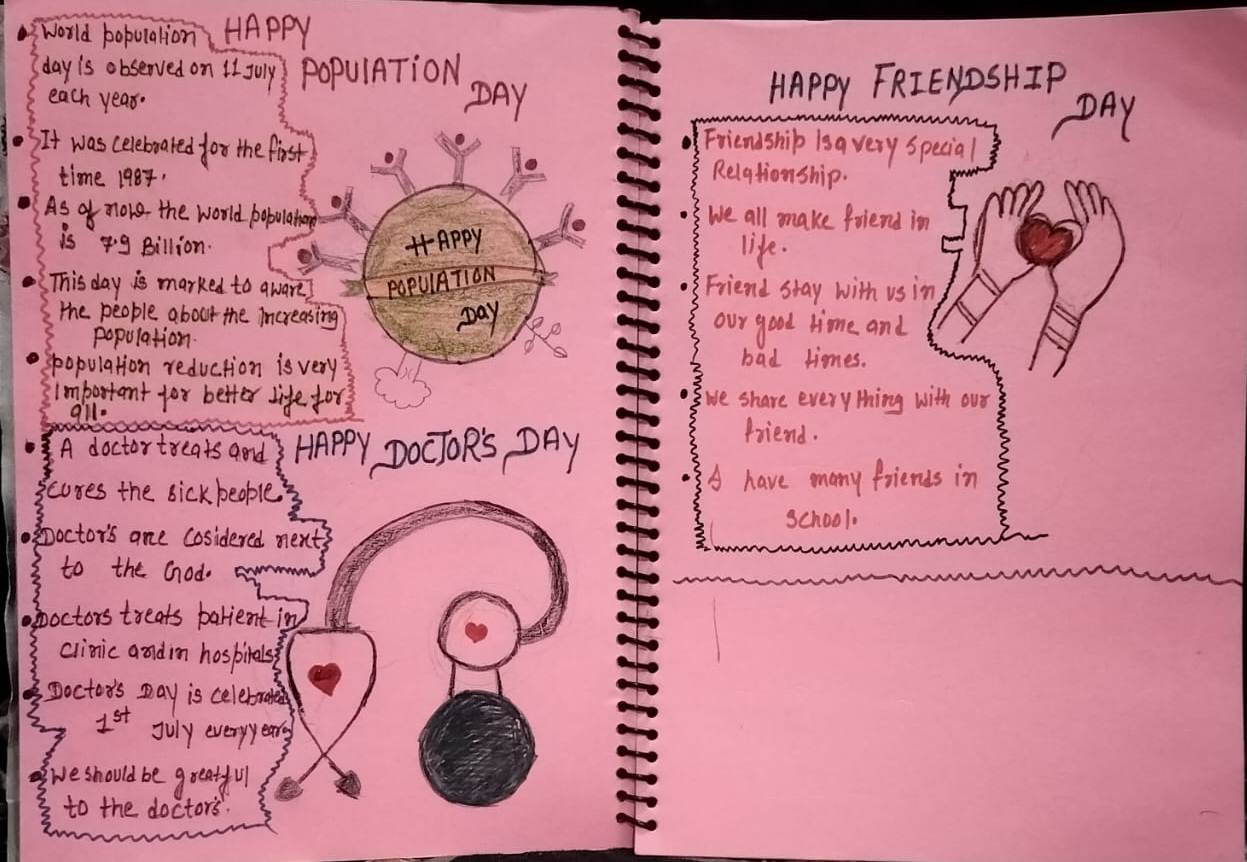 HAPPY
POPULATION
DAY
World population
day is observed on 11 July
each year.
It was celebrated for the first
time 1987.
As of now the world population
is 7.9 Billion.
This day is marked to aware
the people about the increasing
population.
population reduction is very
Important for better life for
all.
HAPPY
POPULATION
DAY
HAPPY DOCTOR'S DAY
A doctor treats and
cures the sick people.
Doctor's are cosidered next
to the God.
Doctors treats patient in
clinic and in hospitals
Doctor's Day is celebrated
1st July every year
We should be greatful
to the doctor's.
HAPPY FRIENDSHIP
DAY
Friendship Is a very special
Relationship.
We all make friend in
life.
Friend stay with us in
our good time and
bad times.
We share every thing with our
friend.
I have many friends in
school.